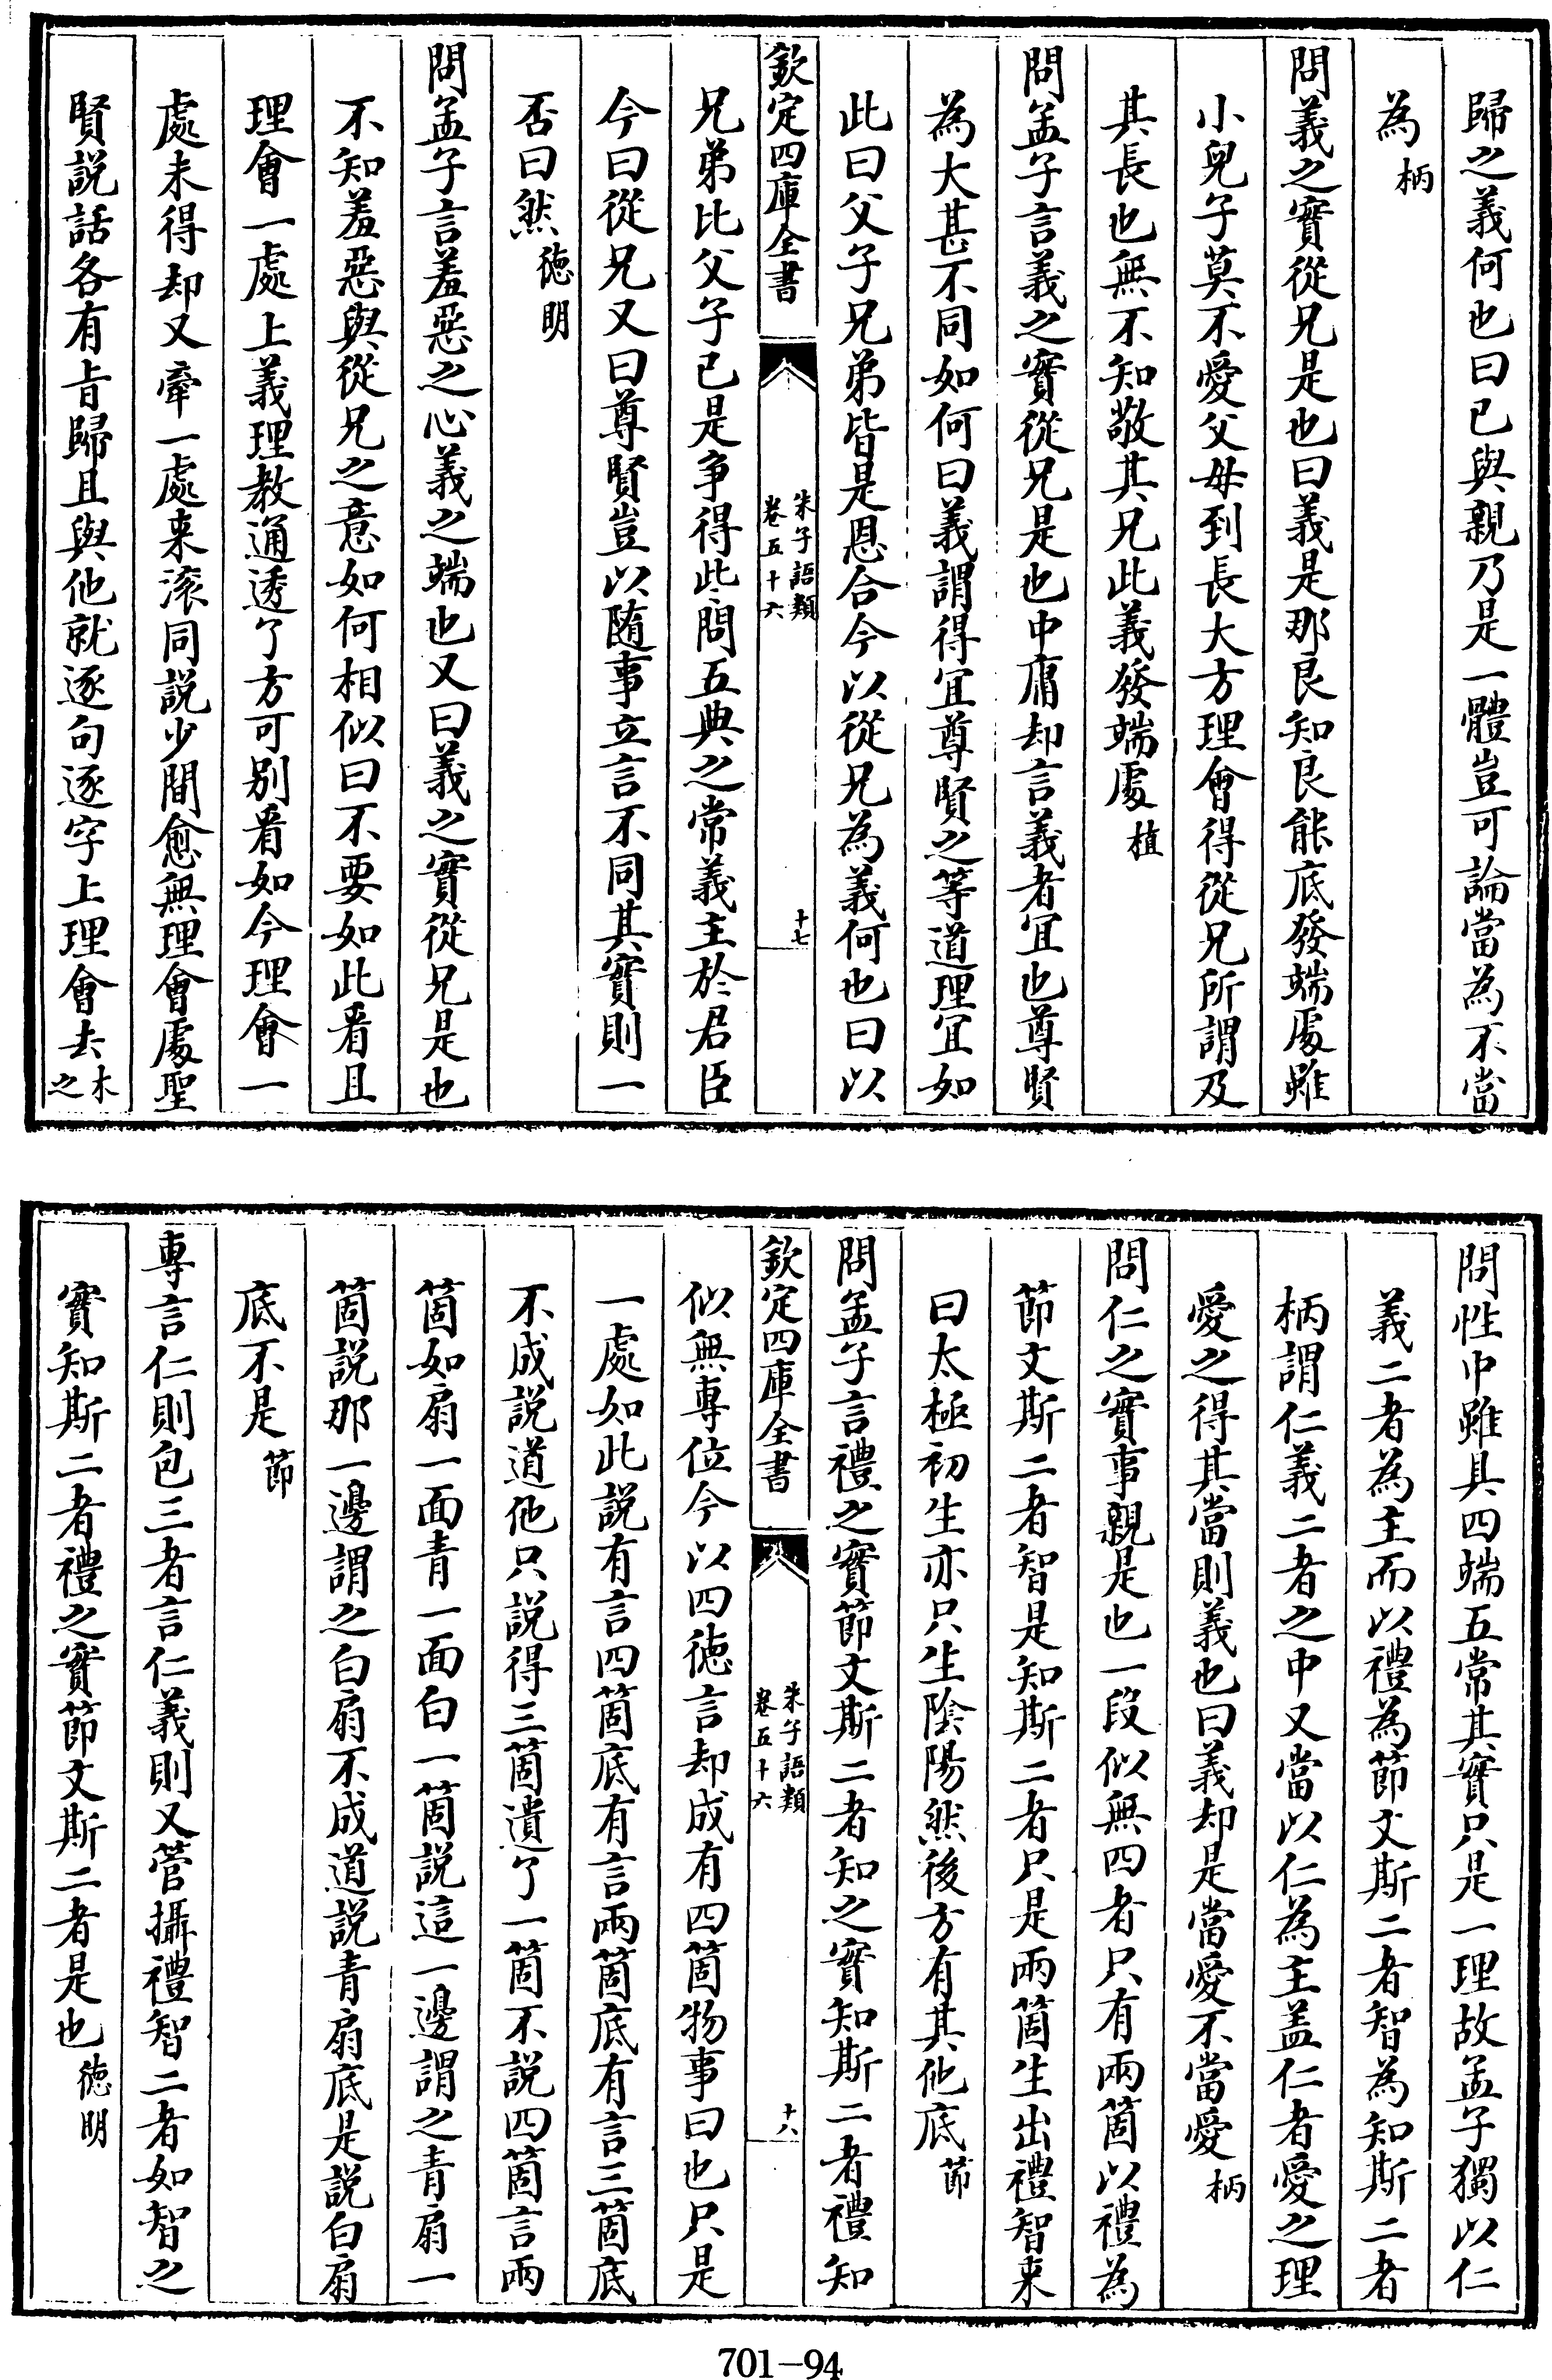 歸之義何也曰已與親乃是一體豈可論當為不當
為柄
問義之實從兄是也曰義是那良知良能底發端處雖
小兒子莫不愛父母到長大方理會得從兄所謂及
其長也無不知敬其兄此義發端處植
問孟子言義之實從兄是也中庸却言義者宜也尊賢
為大甚不同如何曰義謂得宜尊賢之等道理宜如
此曰父子兄弟皆是恩合今以從兄為義何也曰以
欽定四庫全書
朱子語類
卷五十六
十七
兄弟比父子已是争得些問五典之常義主於君臣
今曰從兄又曰尊賢豈以隨事立言不同其實則一
否曰然德明
問孟子言羞惡之心義之端也又曰義之實從兄是也
不知羞惡與從兄之意如何相似曰不要如此看且
理會一處上義理教通透了方可别看如今理會一
處未得却又牽一處来滚同説少間愈無理會處聖
賢説話各有㫖歸且與他就逐句逐字上理會去木之
問性中雖具四端五常其實只是一理故孟子獨以仁
義二者為主而以禮為節文斯二者智為知斯二者
柄謂仁義二者之中又當以仁為主盖仁者愛之理
愛之得其當則義也曰義却是當愛不當愛柄
問仁之實事親是也一段似無四者只有兩箇以禮為
節文斯二者智是知斯二者只是兩箇生出禮智来
曰太極初生亦只生陰陽然後方有其他底節
問孟子言禮之實節文斯二者知之實知斯二者禮知
欽定四庫全書
朱子語類
卷五十六
十八
似無專位今以四德言却成有四箇物事曰也只是
一處如此説有言四箇底有言兩箇底有言三箇底
不成説道他只説得三箇遺了一箇不説四箇言兩
箇如扇一面青一面白一箇説這一邊謂之青扇一
箇説那一邊謂之白扇不成道説青扇底是説白扇
底不是節
專言仁則包三者言仁義則又管攝禮智二者如智之
實知斯二者禮之實節文斯二者是也德明
701-94